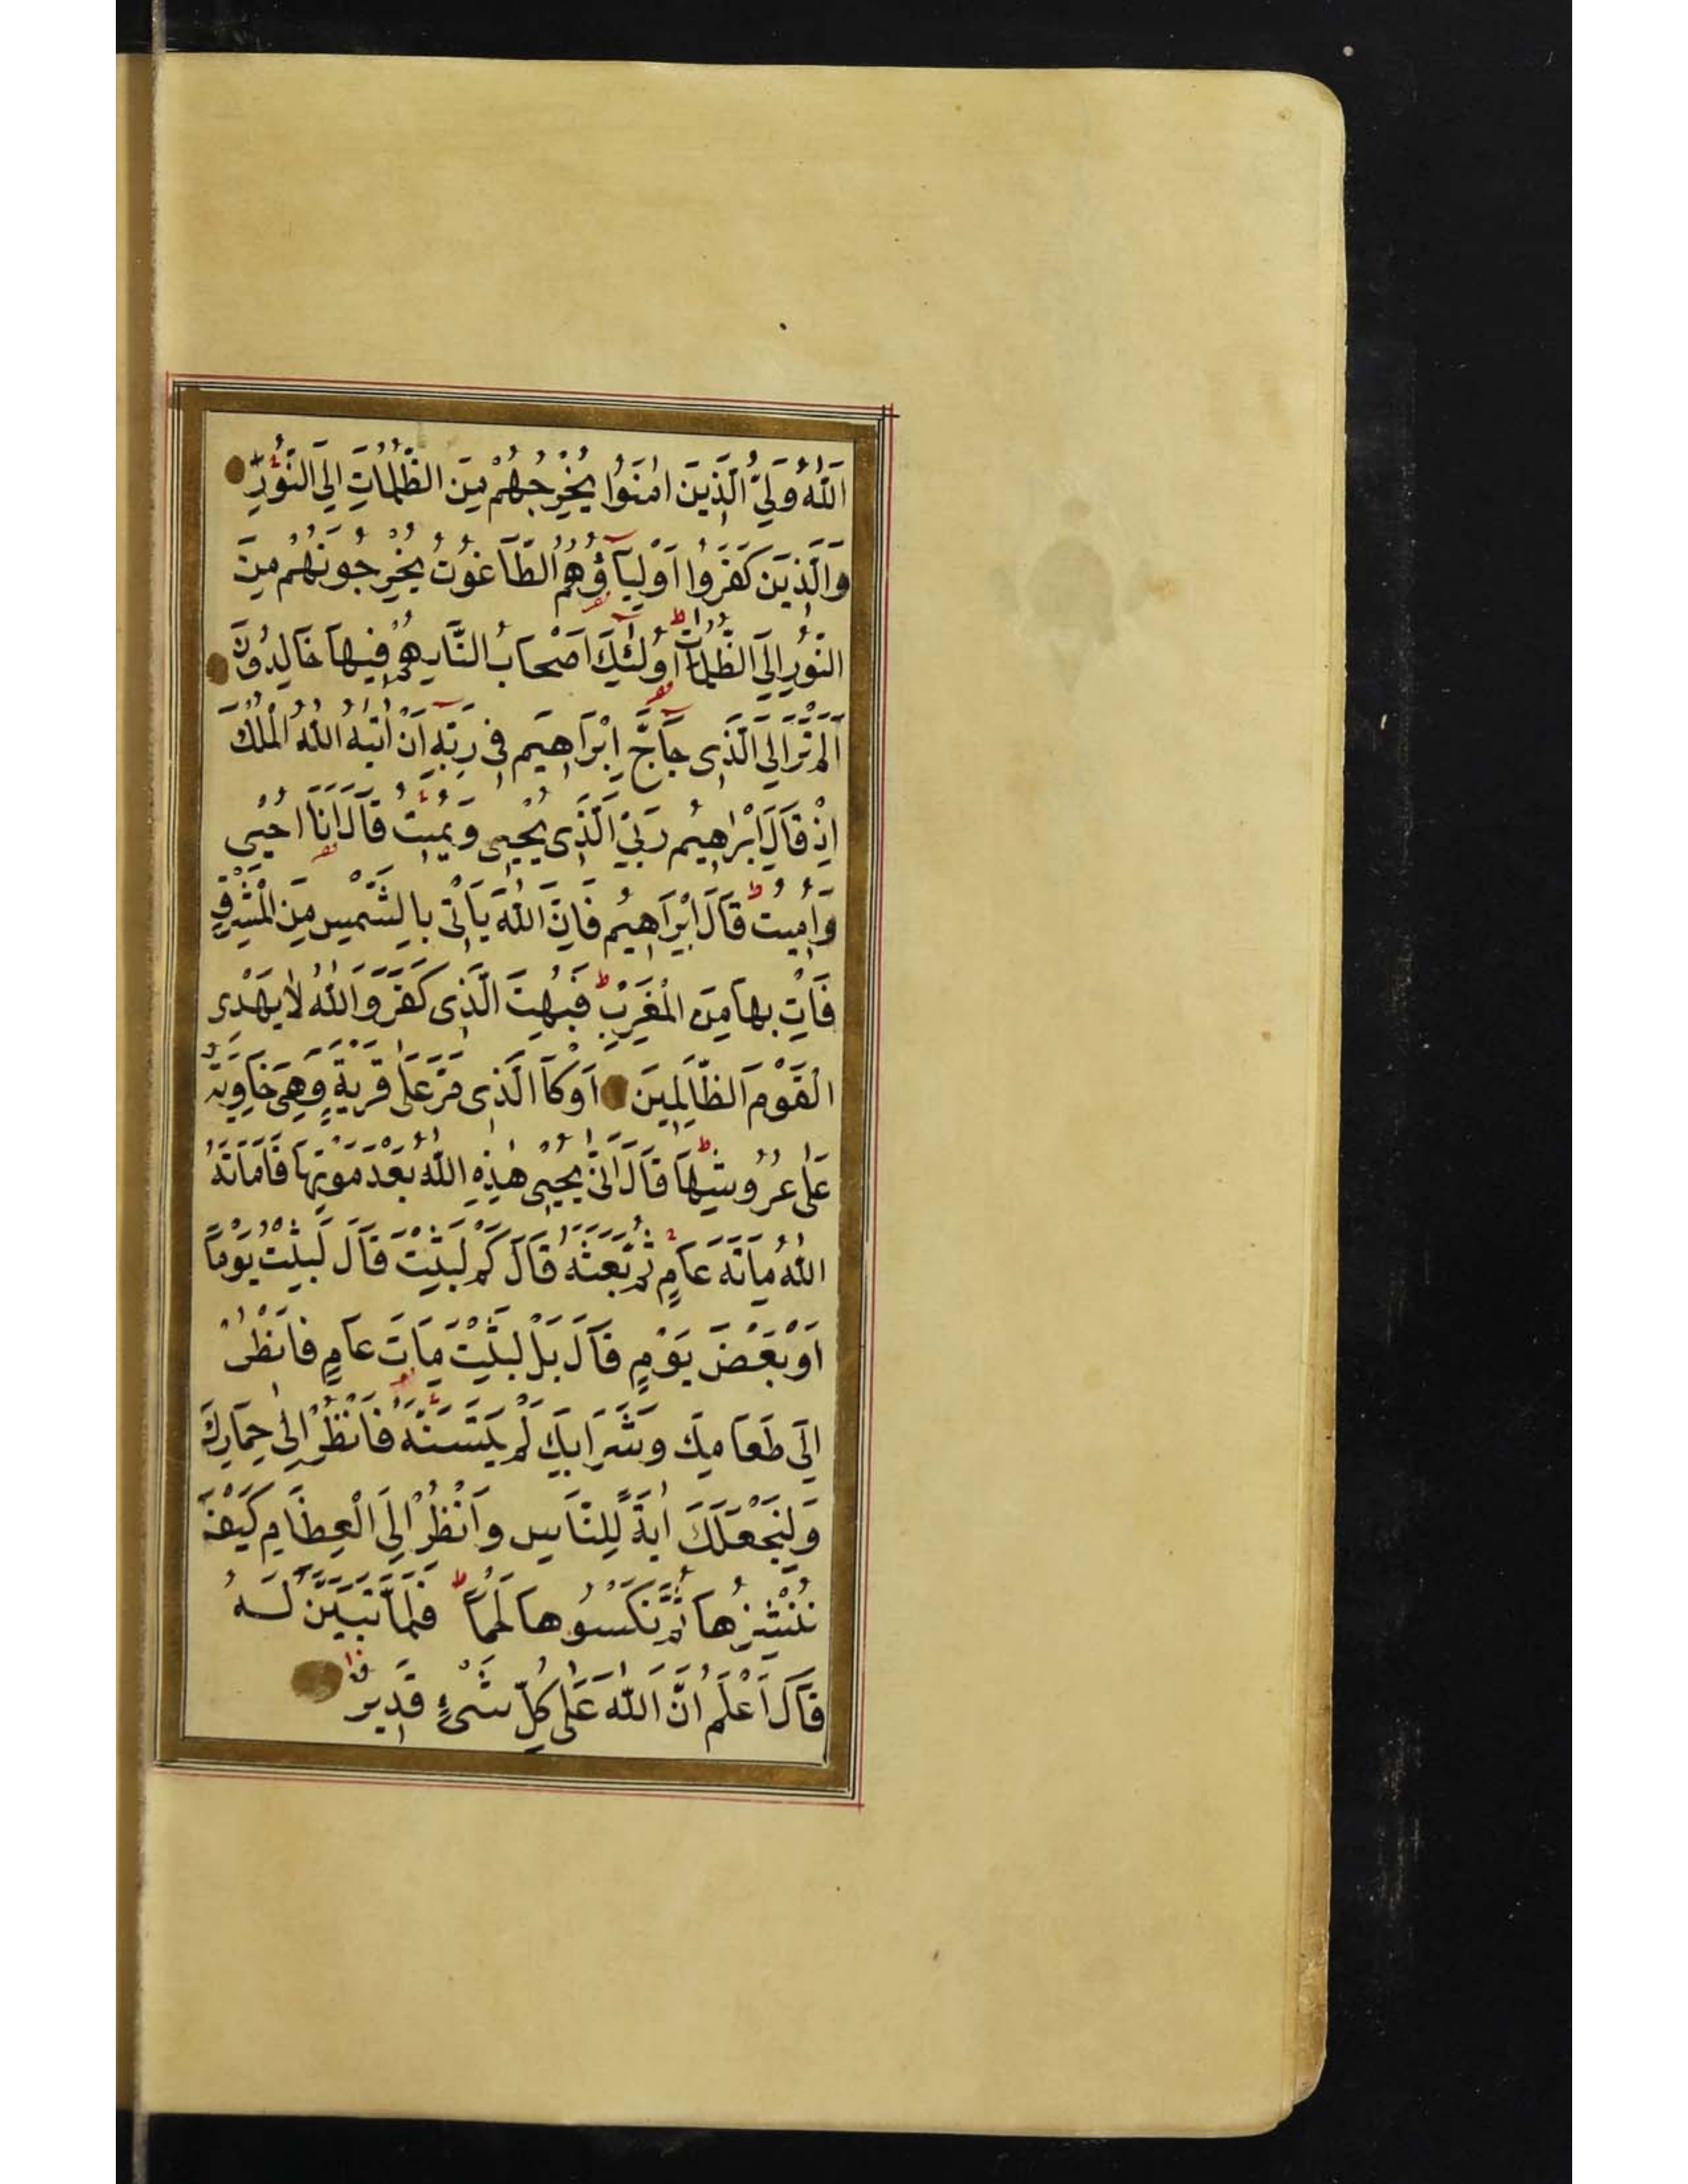 اَللّٰهُ وَلِيُّ الَّذِينَ اٰمَنُوا يُخْرِجُهُمْ مِنَ الظُّلُمَاتِ اِلَى النُّورِ
وَالَّذِينَ كَفَرُوا اَوْلِيَآؤُهُمُ الطَّاغُوتُ يُخْرِجُونَهُمْ مِنَ
النُّورِ اِلَى الظُّلُمَاتِ اُولٰئِكَ اَصْحَابُ النَّارِ هُمْ فِيهَا خَالِدُونَ
اَلَمْ تَرَ اِلَى الَّذِى حَآجَّ اِبْرَاهِيمَ فِى رَبِّهِ اَنْ اٰتٰيهُ اللّٰهُ الْمُلْكَ
اِذْ قَالَ اِبْرَاهِيمُ رَبِّىَ الَّذِى يُحْيِى وَيُمِيتُ قَالَ اَنَا اُحْيِى
وَاُمِيتُ قَالَ اِبْرَاهِيمُ فَاِنَّ اللّٰهَ يَاْتِى بِالشَّمْسِ مِنَ الْمَشْرِقِ
فَاْتِ بِهَا مِنَ الْمَغْرِبِ فَبُهِتَ الَّذِى كَفَرَ وَاللّٰهُ لَا يَهْدِى
الْقَوْمَ الظَّالِمِينَ اَوْ كَا الَّذِى مَرَّ عَلٰى قَرْيَةٍ وَهِىَ خَاوِيَةٌ
عَلٰى عُرُوشِهَا قَالَ اَنّٰى يُحْيِى هٰذِهِ اللّٰهُ بَعْدَ مَوْتِهَا فَاَمَاتَهُ
اللّٰهُ مِاَئةَ عَامٍ ثُمَّ بَعَثَهُ قَالَ كَمْ لَبِثْتَ قَالَ لَبِثْتُ يَوْمًا
اَوْ بَعْضَ يَوْمٍ قَالَ بَلْ لَبِثْتَ مِاَتَ عَامٍ فَانْظُرْ
اِلَى طَعَامِكَ وَشَرَابِكَ لَمْ يَتَسَنَّهْ فَانْظُرْ اِلٰى حِمَارِكَ
وَلِنَجْعَلَكَ اٰيَةً لِلنَّاسِ وَانْظُرْ اِلَى الْعِظَامِ كَيْفَ
نُنْشِزُهَا ثُمَّ نَكْسُوهَا لَحْمًا فَلَمَّا تَبَيَّنَ لَهُ
قَالَ اَعْلَمُ اَنَّ اللّٰهَ عَلٰى كُلِّ شَىْءٍ قَدِيرٌ